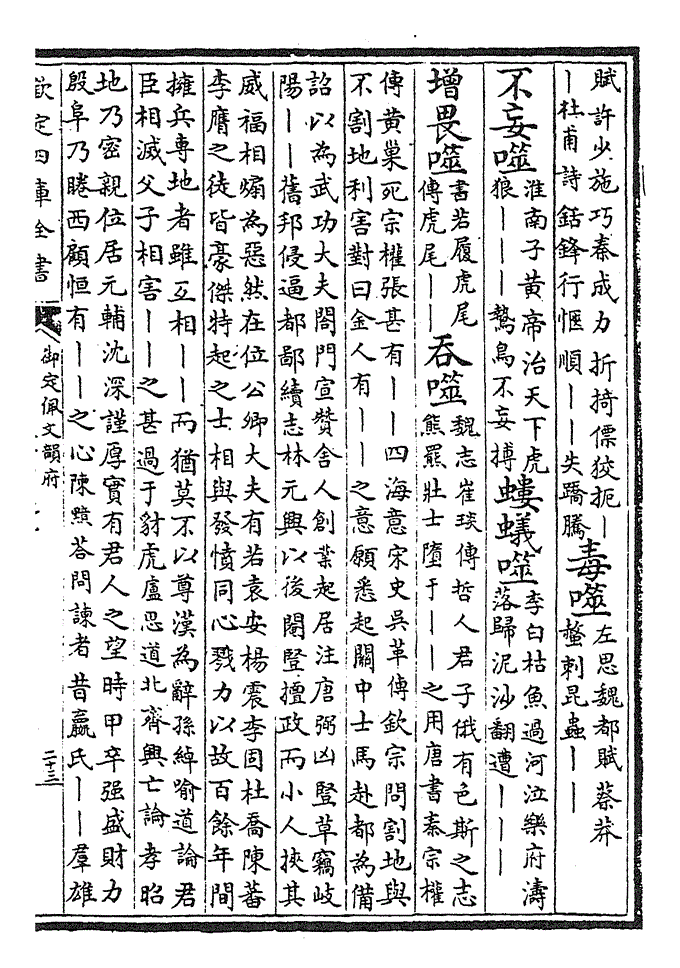 賦許少施巧秦成力折掎僄狡扼丨
丨杜甫詩銛鋒行愜順丨丨失蹻騰
毒噬
左思魏都賦蔡莽
螫刺昆蟲丨丨
不妄噬
淮南子黄帝治天下虎
狼丨丨丨鷙鳥不妄搏
螻蟻噬
李白枯魚過河泣樂府濤
落歸泥沙翻遭丨丨丨
增畏噬
書若履虎尾
傳虎尾丨丨
吞噬
魏志崔琰傳哲人君子俄有色斯之志
熊羆壯士墮于丨丨之用唐書秦宗權
傳黄巢死宗權張甚有丨丨四海意宋史吳革傳欽宗問割地與
不割地利害對曰金人有丨丨之意願悉起關中士馬赴都為備
詔以為武功大夫閤門宣贊舍人創業起居注唐弼凶豎草竊岐
陽丨丨舊邦侵逼都鄙續志林元興以後閹豎擅政而小人挾其
威福相煽為惡然在位公卿大夫有若袁安楊震李固杜喬陳蕃
李膺之徒皆豪傑特起之士相與發憤同心戮力以故百餘年間
擁兵專地者雖互相丨丨而猶莫不以尊漢為辭孫綽喻道論君
臣相滅父子相害丨丨之甚過于豺虎盧思道北齊興亡論孝昭
地乃密親位居元輔沈深謹厚實有君人之望時甲卒强盛財力
殷阜乃睠西顧恒有丨丨之心陳黯答問諫者昔嬴氏丨丨羣雄
欽定四庫全書
御定佩文韻府
二十三